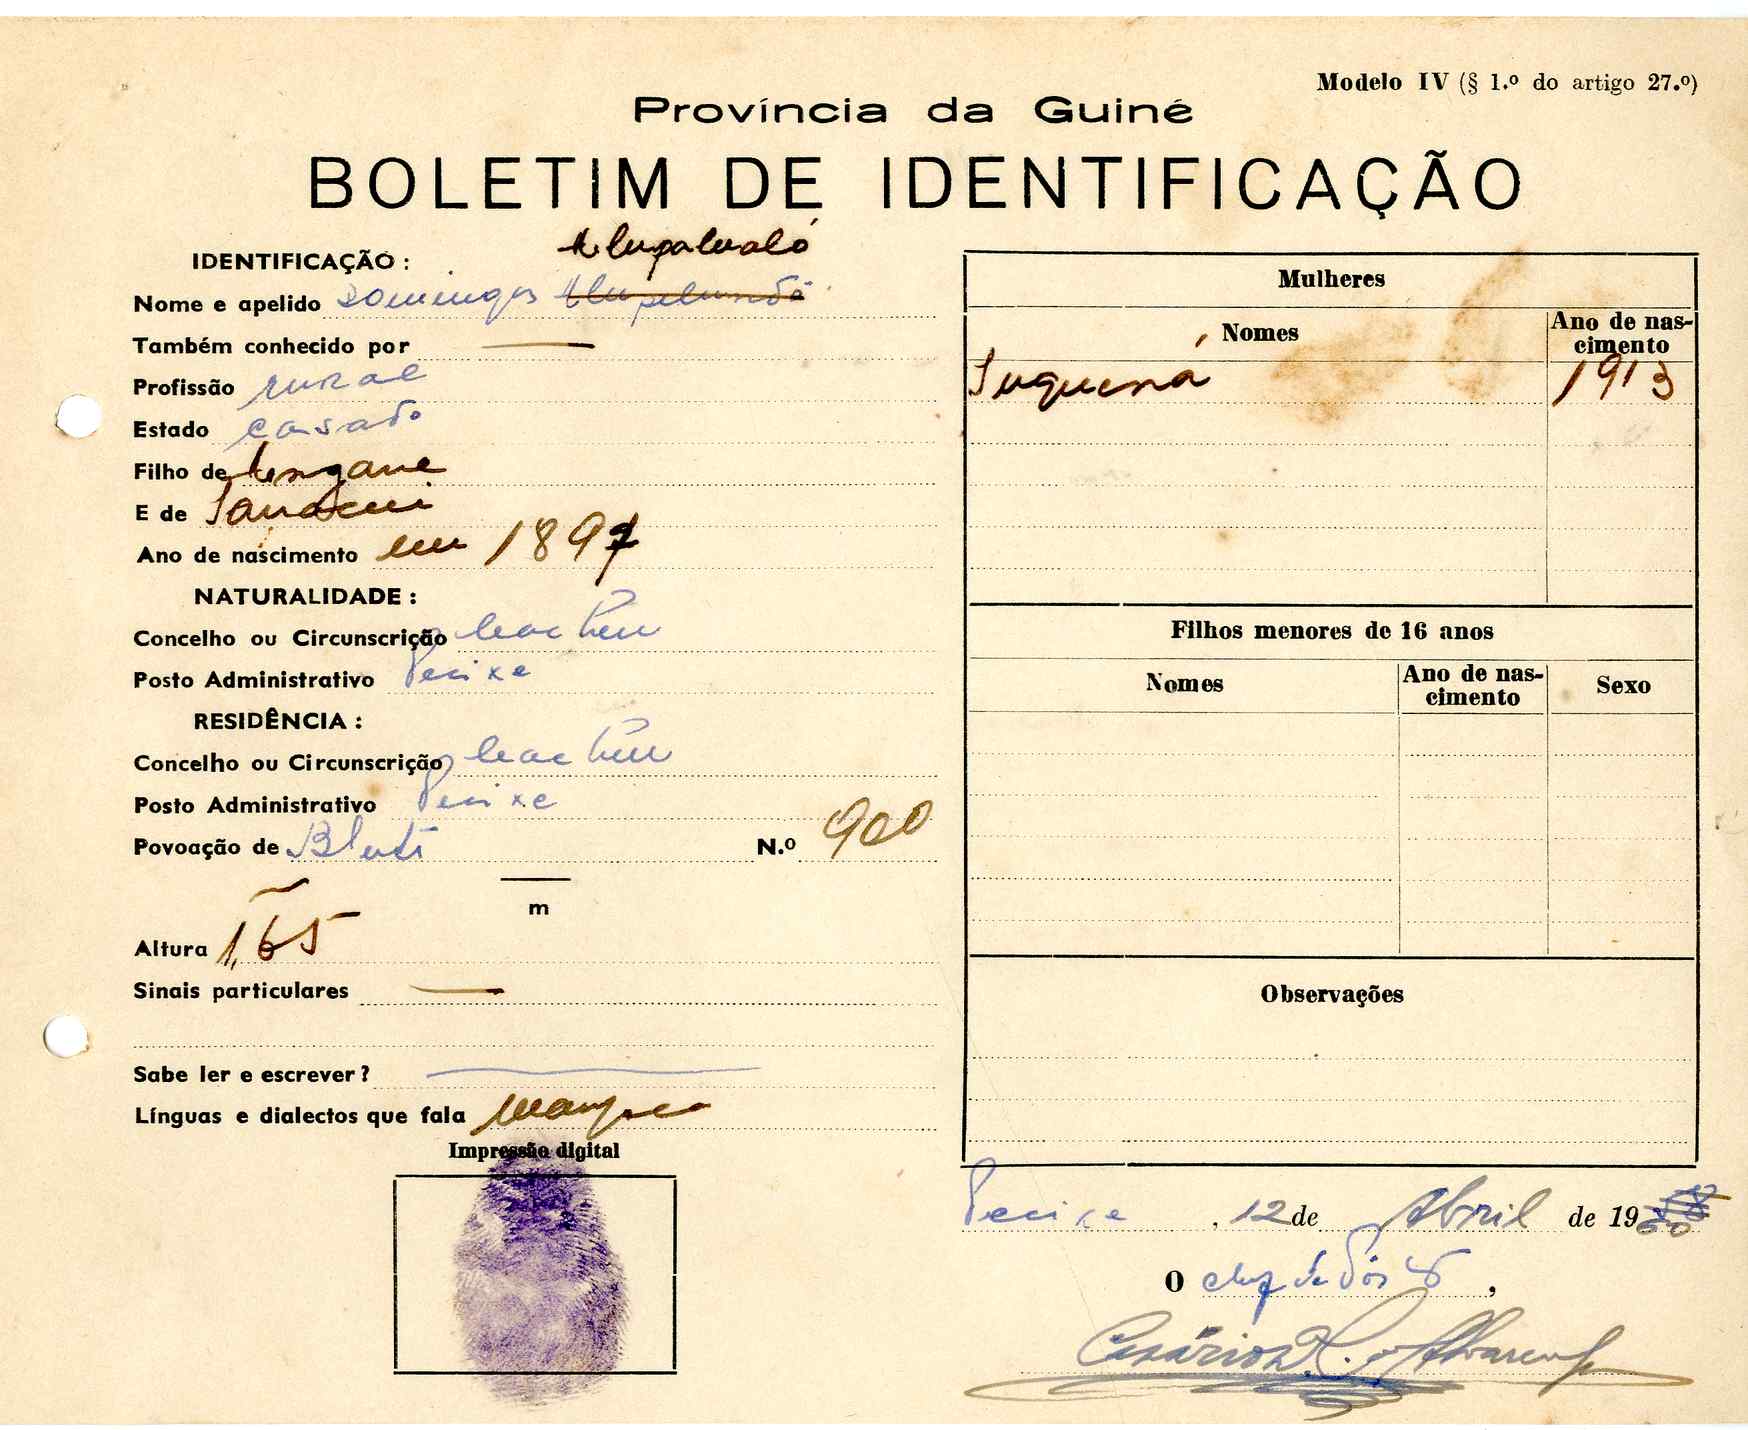 Modelo IV (§ 1.º do artigo 27.º)
Província da Guiné
BOLETIM DE IDENTIFICAÇÃO
IDENTIFICAÇÃO :
Nome e apelido Domingos
Também conhecido por —
Profissão rural
Estado casado
Filho de
E de
Ano de nascimento em 1897
NATURALIDADE :
Concelho ou Circunscrição Cacheu
Posto Administrativo Pecixe
RESIDÊNCIA :
Concelho ou Circunscrição Cacheu
Posto Administrativo Pecixe
Povoação de N.º 900
m
Altura 1,65
Sinais particulares —
Sabe ler e escrever ? —
Línguas e dialectos que fala
Impressão digital
Mulheres
Nomes Ano de nas-
cimento
Suquená 1913
Filhos menores de 16 anos
Nomes Ano de nas-
cimento Sexo
Observações
Pecixe, 12 de Abril de 19
O chefe de Posto,